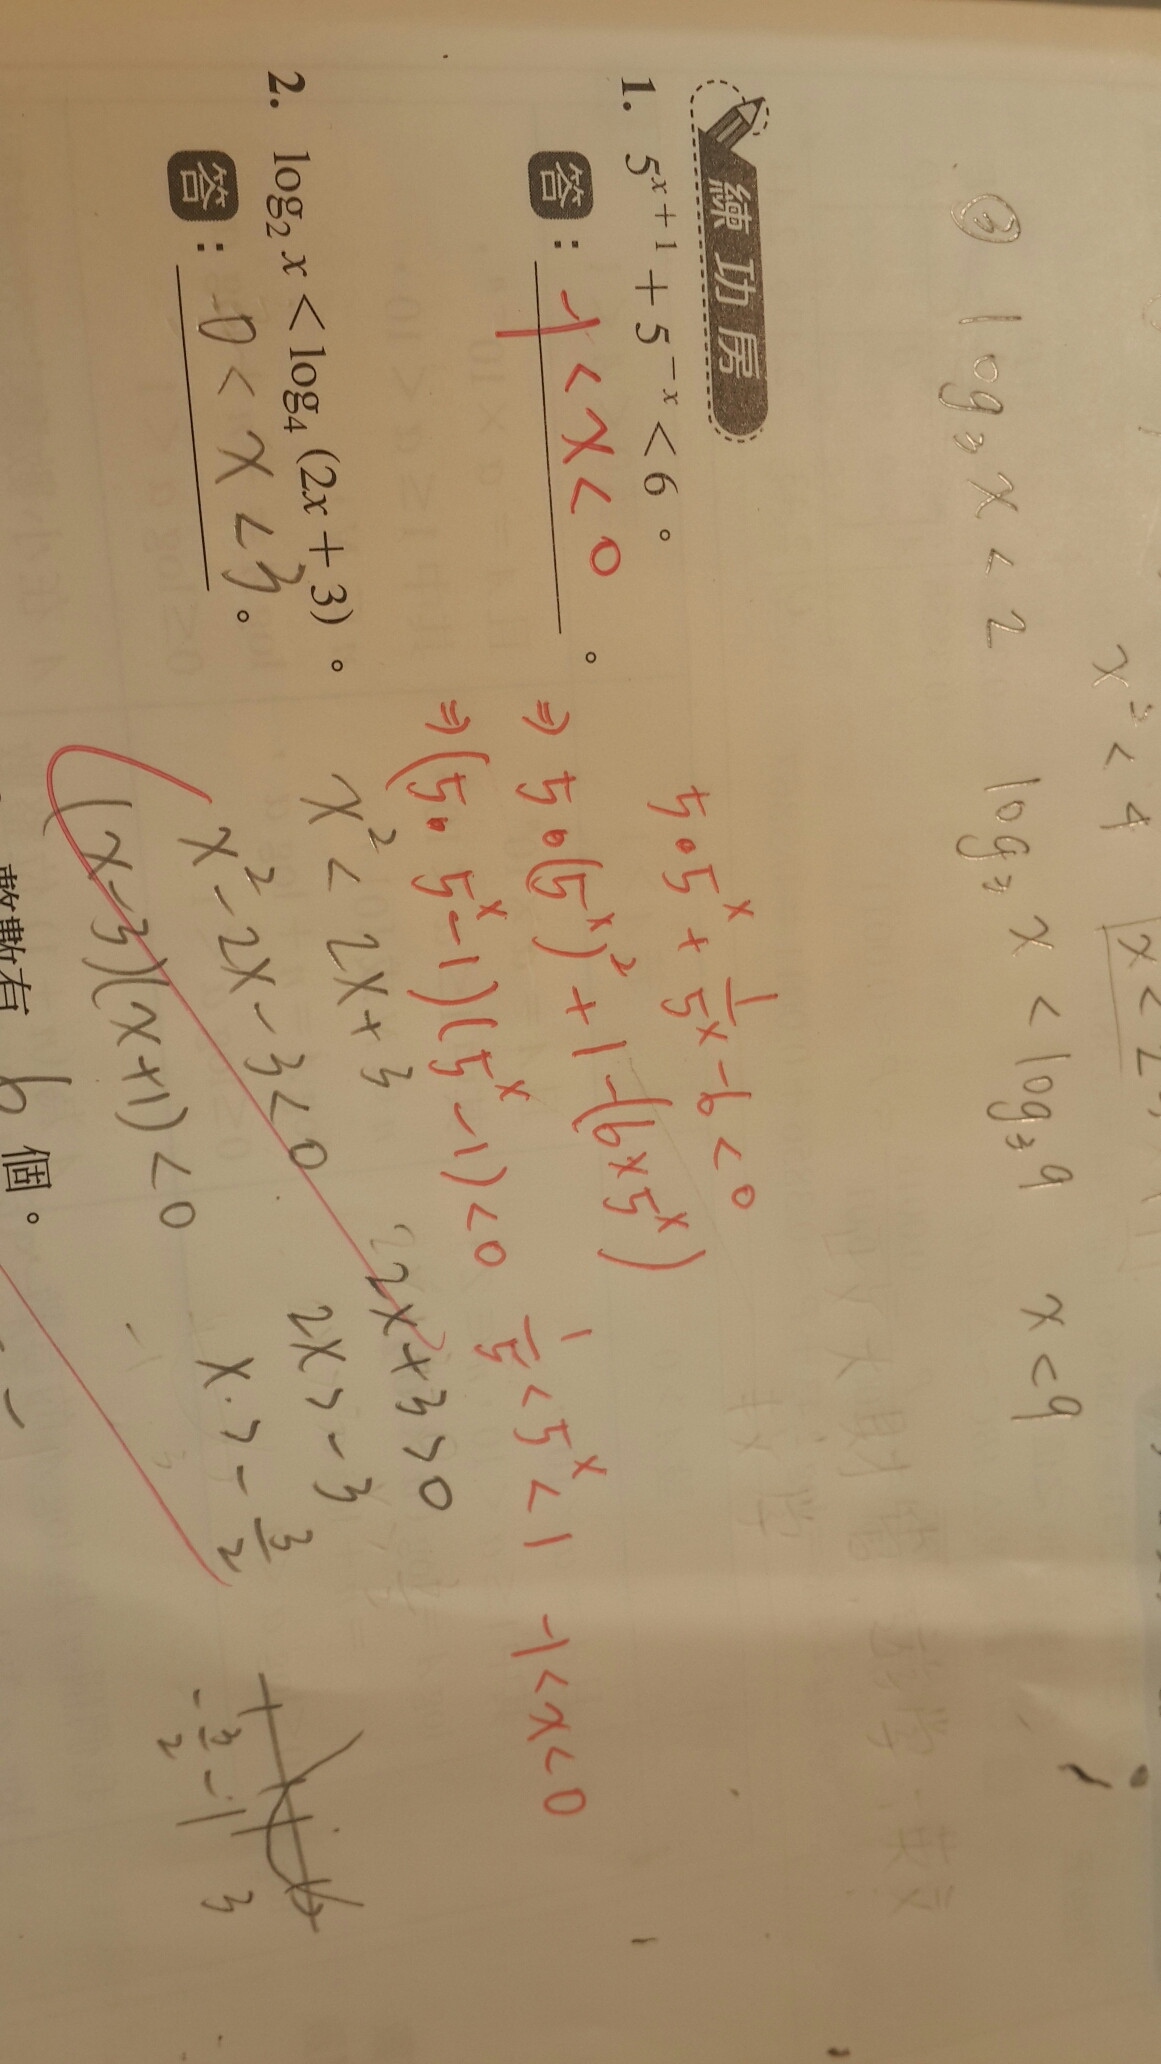 x² < 4
③ log₃ x < 2 log₃ x < log₃ 9 x < 9
練功房
1. 5ˣ⁺¹ + 5⁻ˣ < 6。
5·5ˣ + 1/5ˣ - 6 < 0
答：-1 < x < 0。
⇒ 5·(5ˣ)² + 1 - (6×5ˣ)
⇒ (5·5ˣ - 1)(5ˣ - 1) < 0 1/5 < 5ˣ < 1 -1 < x < 0
2. log₂ x < log₄ (2x + 3)。
答：0 < x < 3。
x² < 2x + 3 2x + 3 > 0
x² - 2x - 3 < 0 2x > -3
(x - 3)(x + 1) < 0 x > -3/2
-3/2 -1 3
數有 6 個。